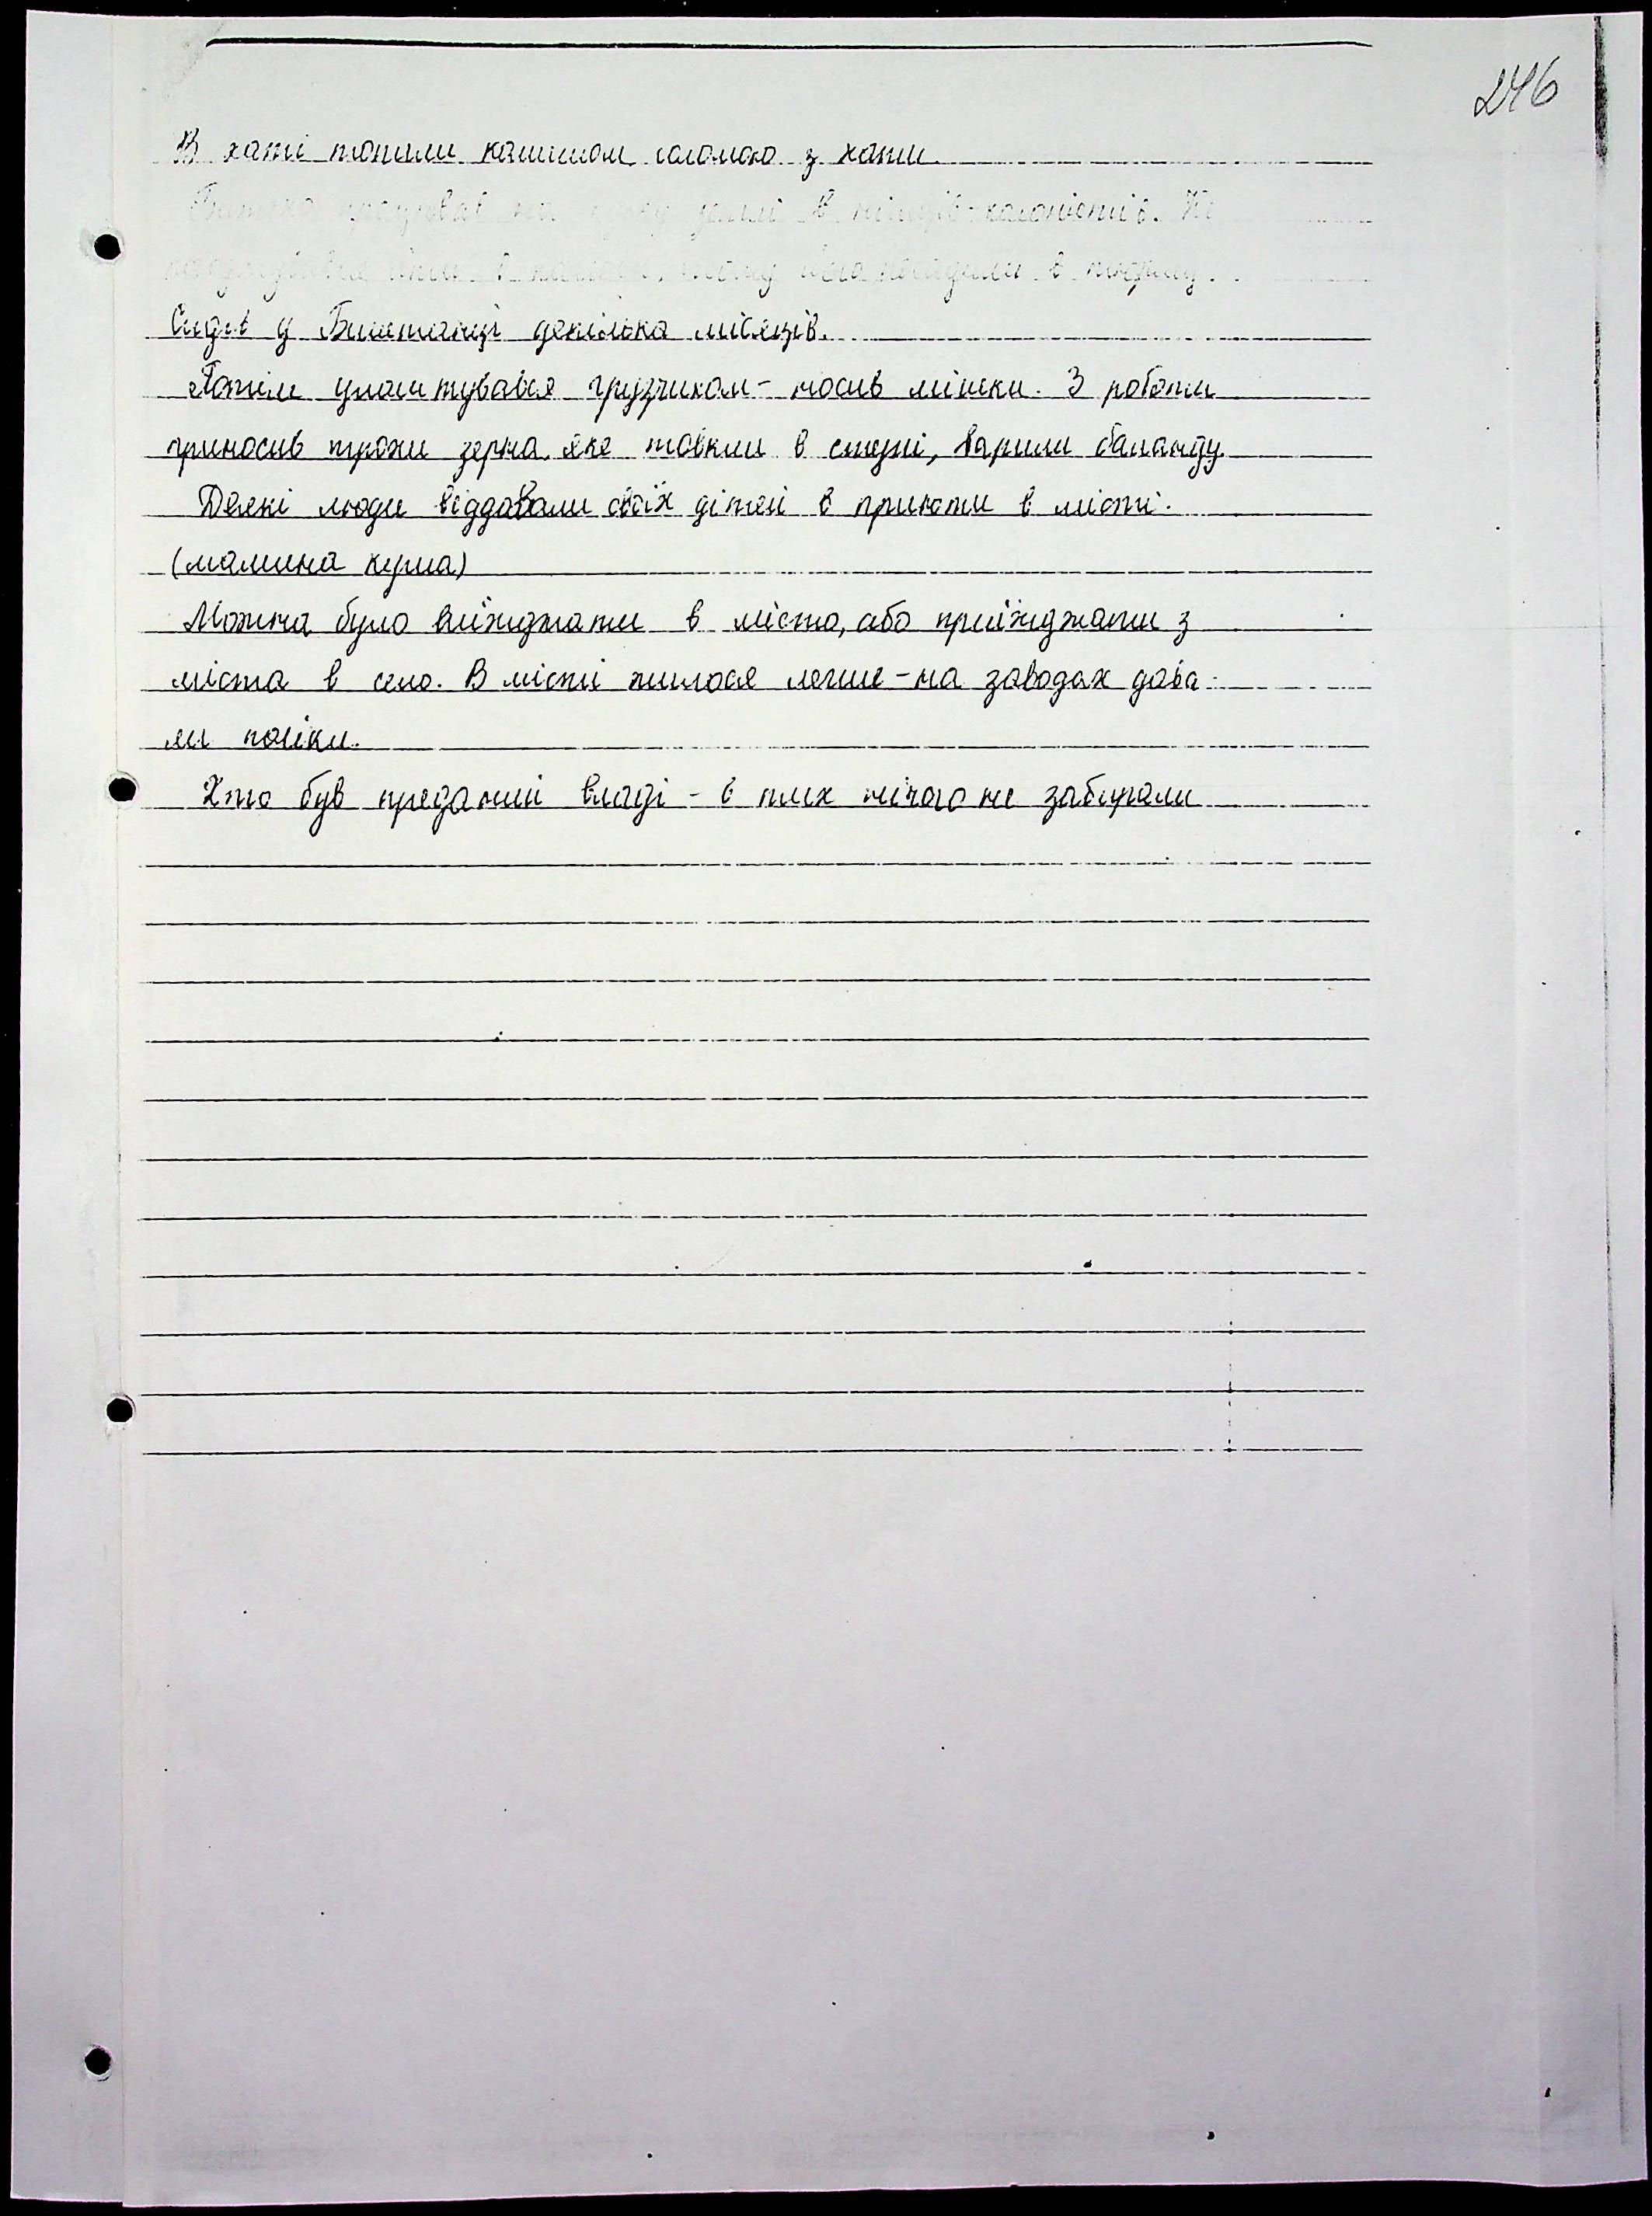 246
В хаті топили камишом соломою з хати
працював на землі в німців-колоністів. Не
в тому його посадили в тюрму.
Сидів у Баштанці декілька місяців.
Потім улаштувався грузчиком - носив мішки. З роботи
приносив трохи зерна, яке товкли в ступі, варили баланду
Деякі люди віддавали своїх дітей в приюти в місті.
(мамина кума)
Можна було виїжджати в місто, або приїжджати з
міста в село. В місті жилося легше - на заводах дава-
ли пайки.
Хто був преданий владі - в тих нічого не забирали